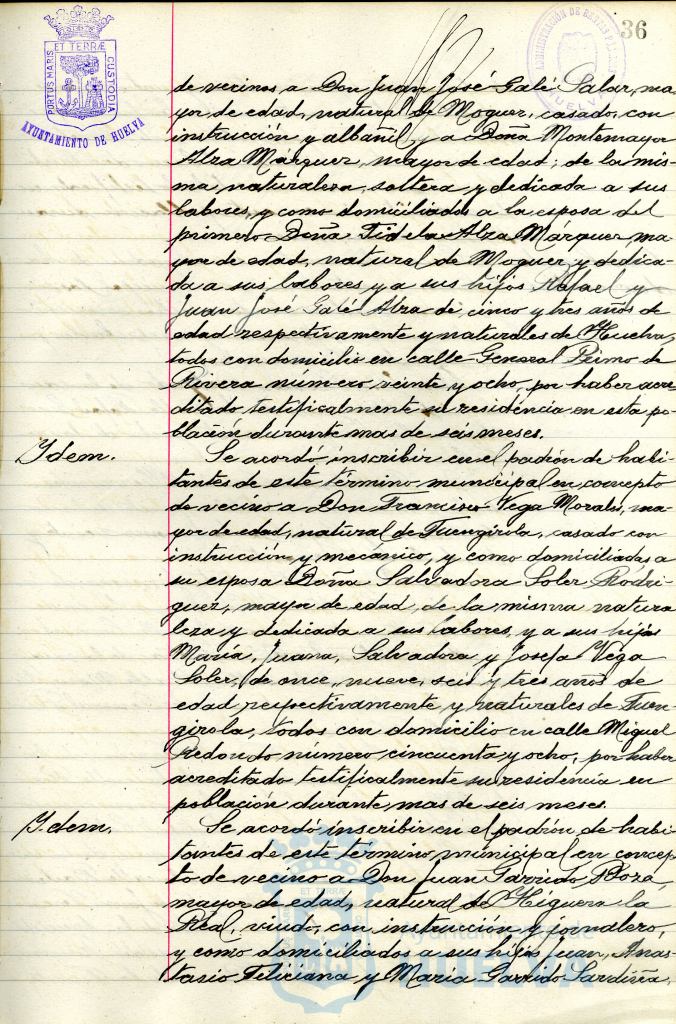 36
PORTUS MARIS ET TERRÆ CUSTODIA
AYUNTAMIENTO DE HUELVA
ADMINISTRACIÓN DE RENTAS
HUELVA
de vecinos, a Don Juan José Galé Salar, ma-
yor de edad, natural de Moguer, casado, con
instrucción y albañil, y a Doña Montemayor
Alza Márquez, mayor de edad, de la mis-
ma naturaleza, soltera y dedicada a sus
labores, y como domiciliados a la esposa del
primero Doña Fidela Alza Márquez, ma-
yor de edad, natural de Moguer y dedica-
da a sus labores y a sus hijos Rafael y
Juan José Galé Alza de cinco y tres años de
edad respectivamente y naturales de Huelva,
todos con domicilio en calle General Primo de
Rivera número veinte y ocho, por haber acre-
ditado testificalmente su residencia en esta po-
blación durante mas de seis meses.
Idem.
Se acordó inscribir en el padrón de habi-
tantes de este término municipal en concepto
de vecino a Don Francisco Vega Morales, ma-
yor de edad, natural de Fuengirola, casado con
instrucción y mecánico, y como domiciliados a
su esposa Doña Salvadora Soler Rodri-
guez, mayor de edad, de la misma natura
leza y dedicada a sus labores, y a sus hijos
María, Juana, Salvadora y Josefa Vega
Soler, de once, nueve, seis y tres años de
edad respectivamente y naturales de Fuen-
girola, todos con domicilio en calle Miguel
Redondo número cincuenta y ocho, por haber
acreditado testificalmente su residencia en
población durante mas de seis meses.
Idem.
Se acordó inscribir en el padrón de habi-
tantes de este término municipal en concep-
to de vecino a Don Juan Garrido Boza,
mayor de edad, natural de Higuera la
Real, viudo, con instrucción y jornalero,
y como domiciliados a sus hijos Juan, Anas-
tasio Feliciana y María Garrido Sardiña,